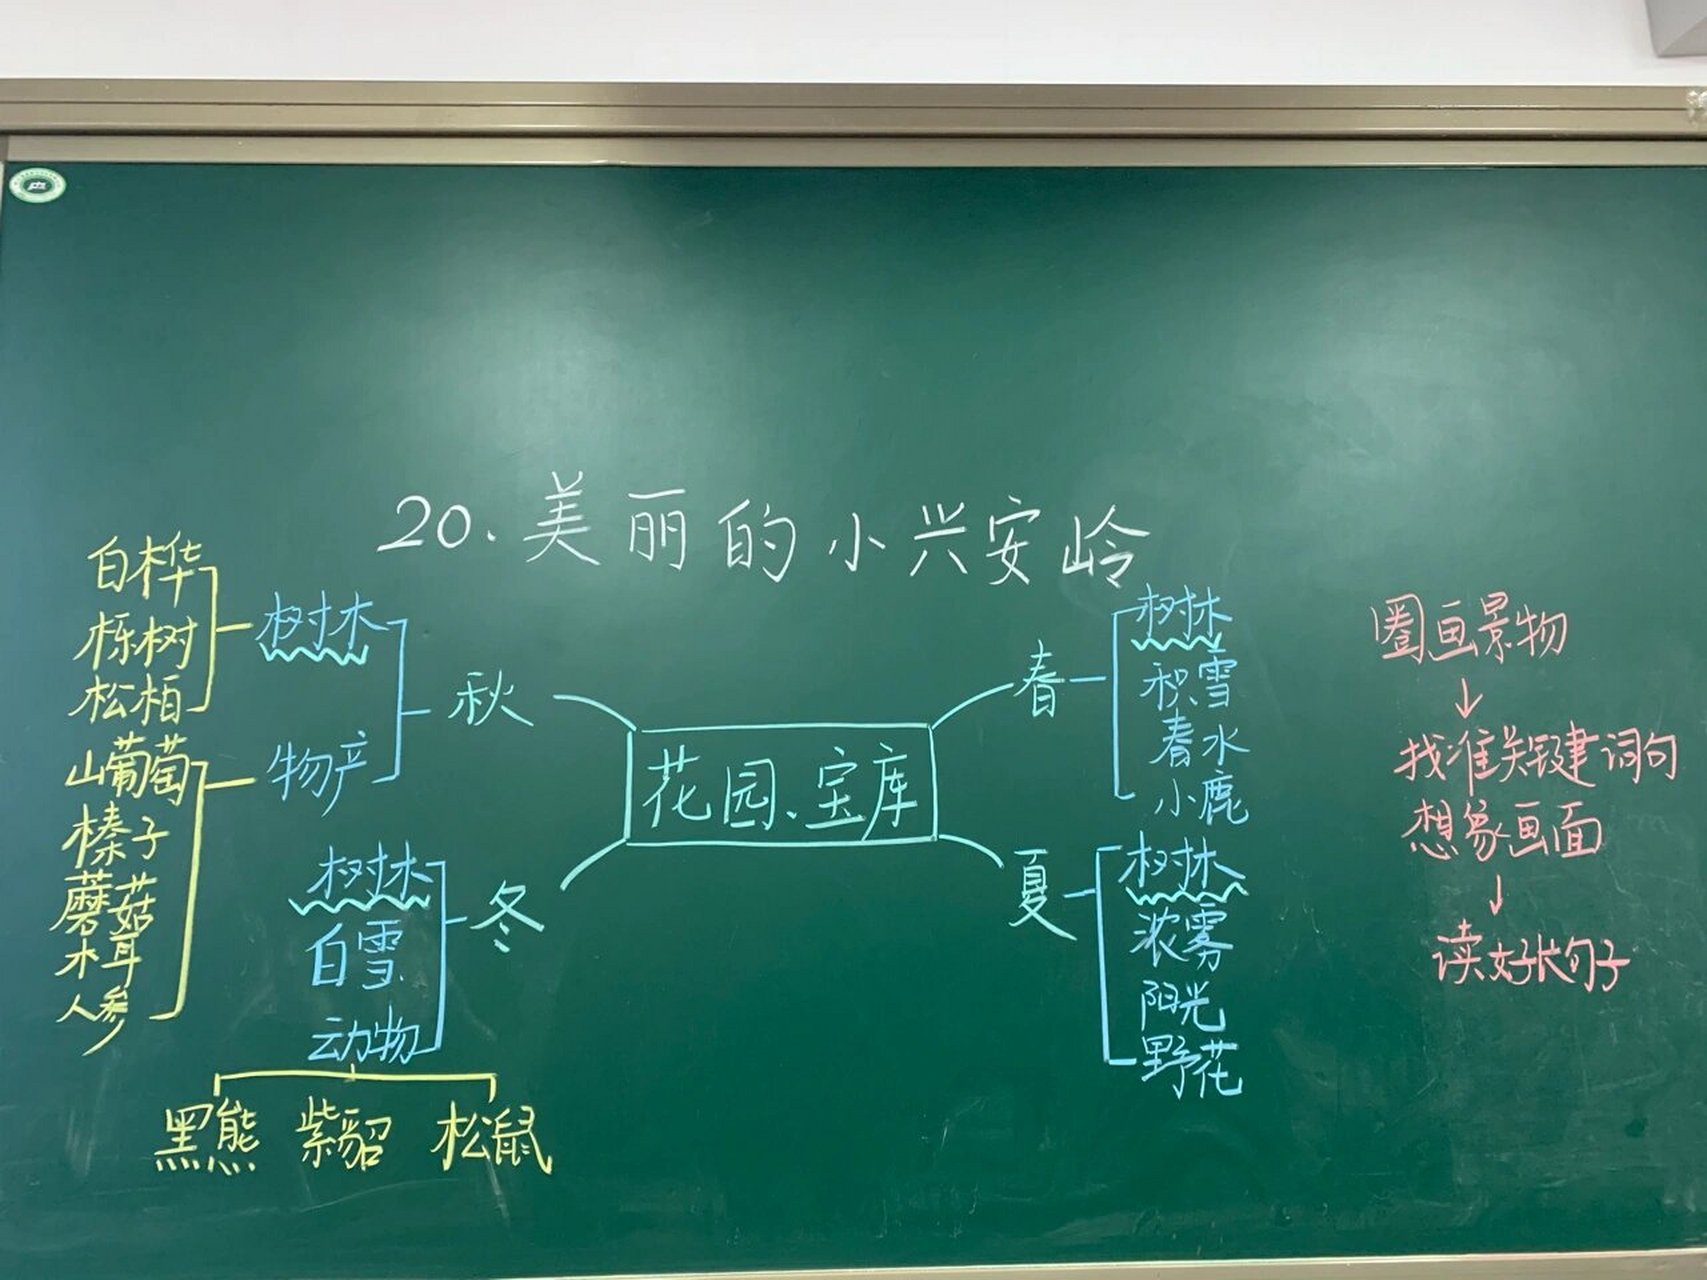 20.美丽的小兴安岭
白桦
栎树
松柏
树林
山葡萄
榛子
蘑菇
木耳
人参
物产
秋
树林
白雪
动物
冬
黑熊 紫貂 松鼠
花园、宝库
春
树林
积雪
春水
小鹿
夏
树林
浓雾
阳光
野花
圈画景物
↓
找准关键词句
想象画面
↓
读好长句子